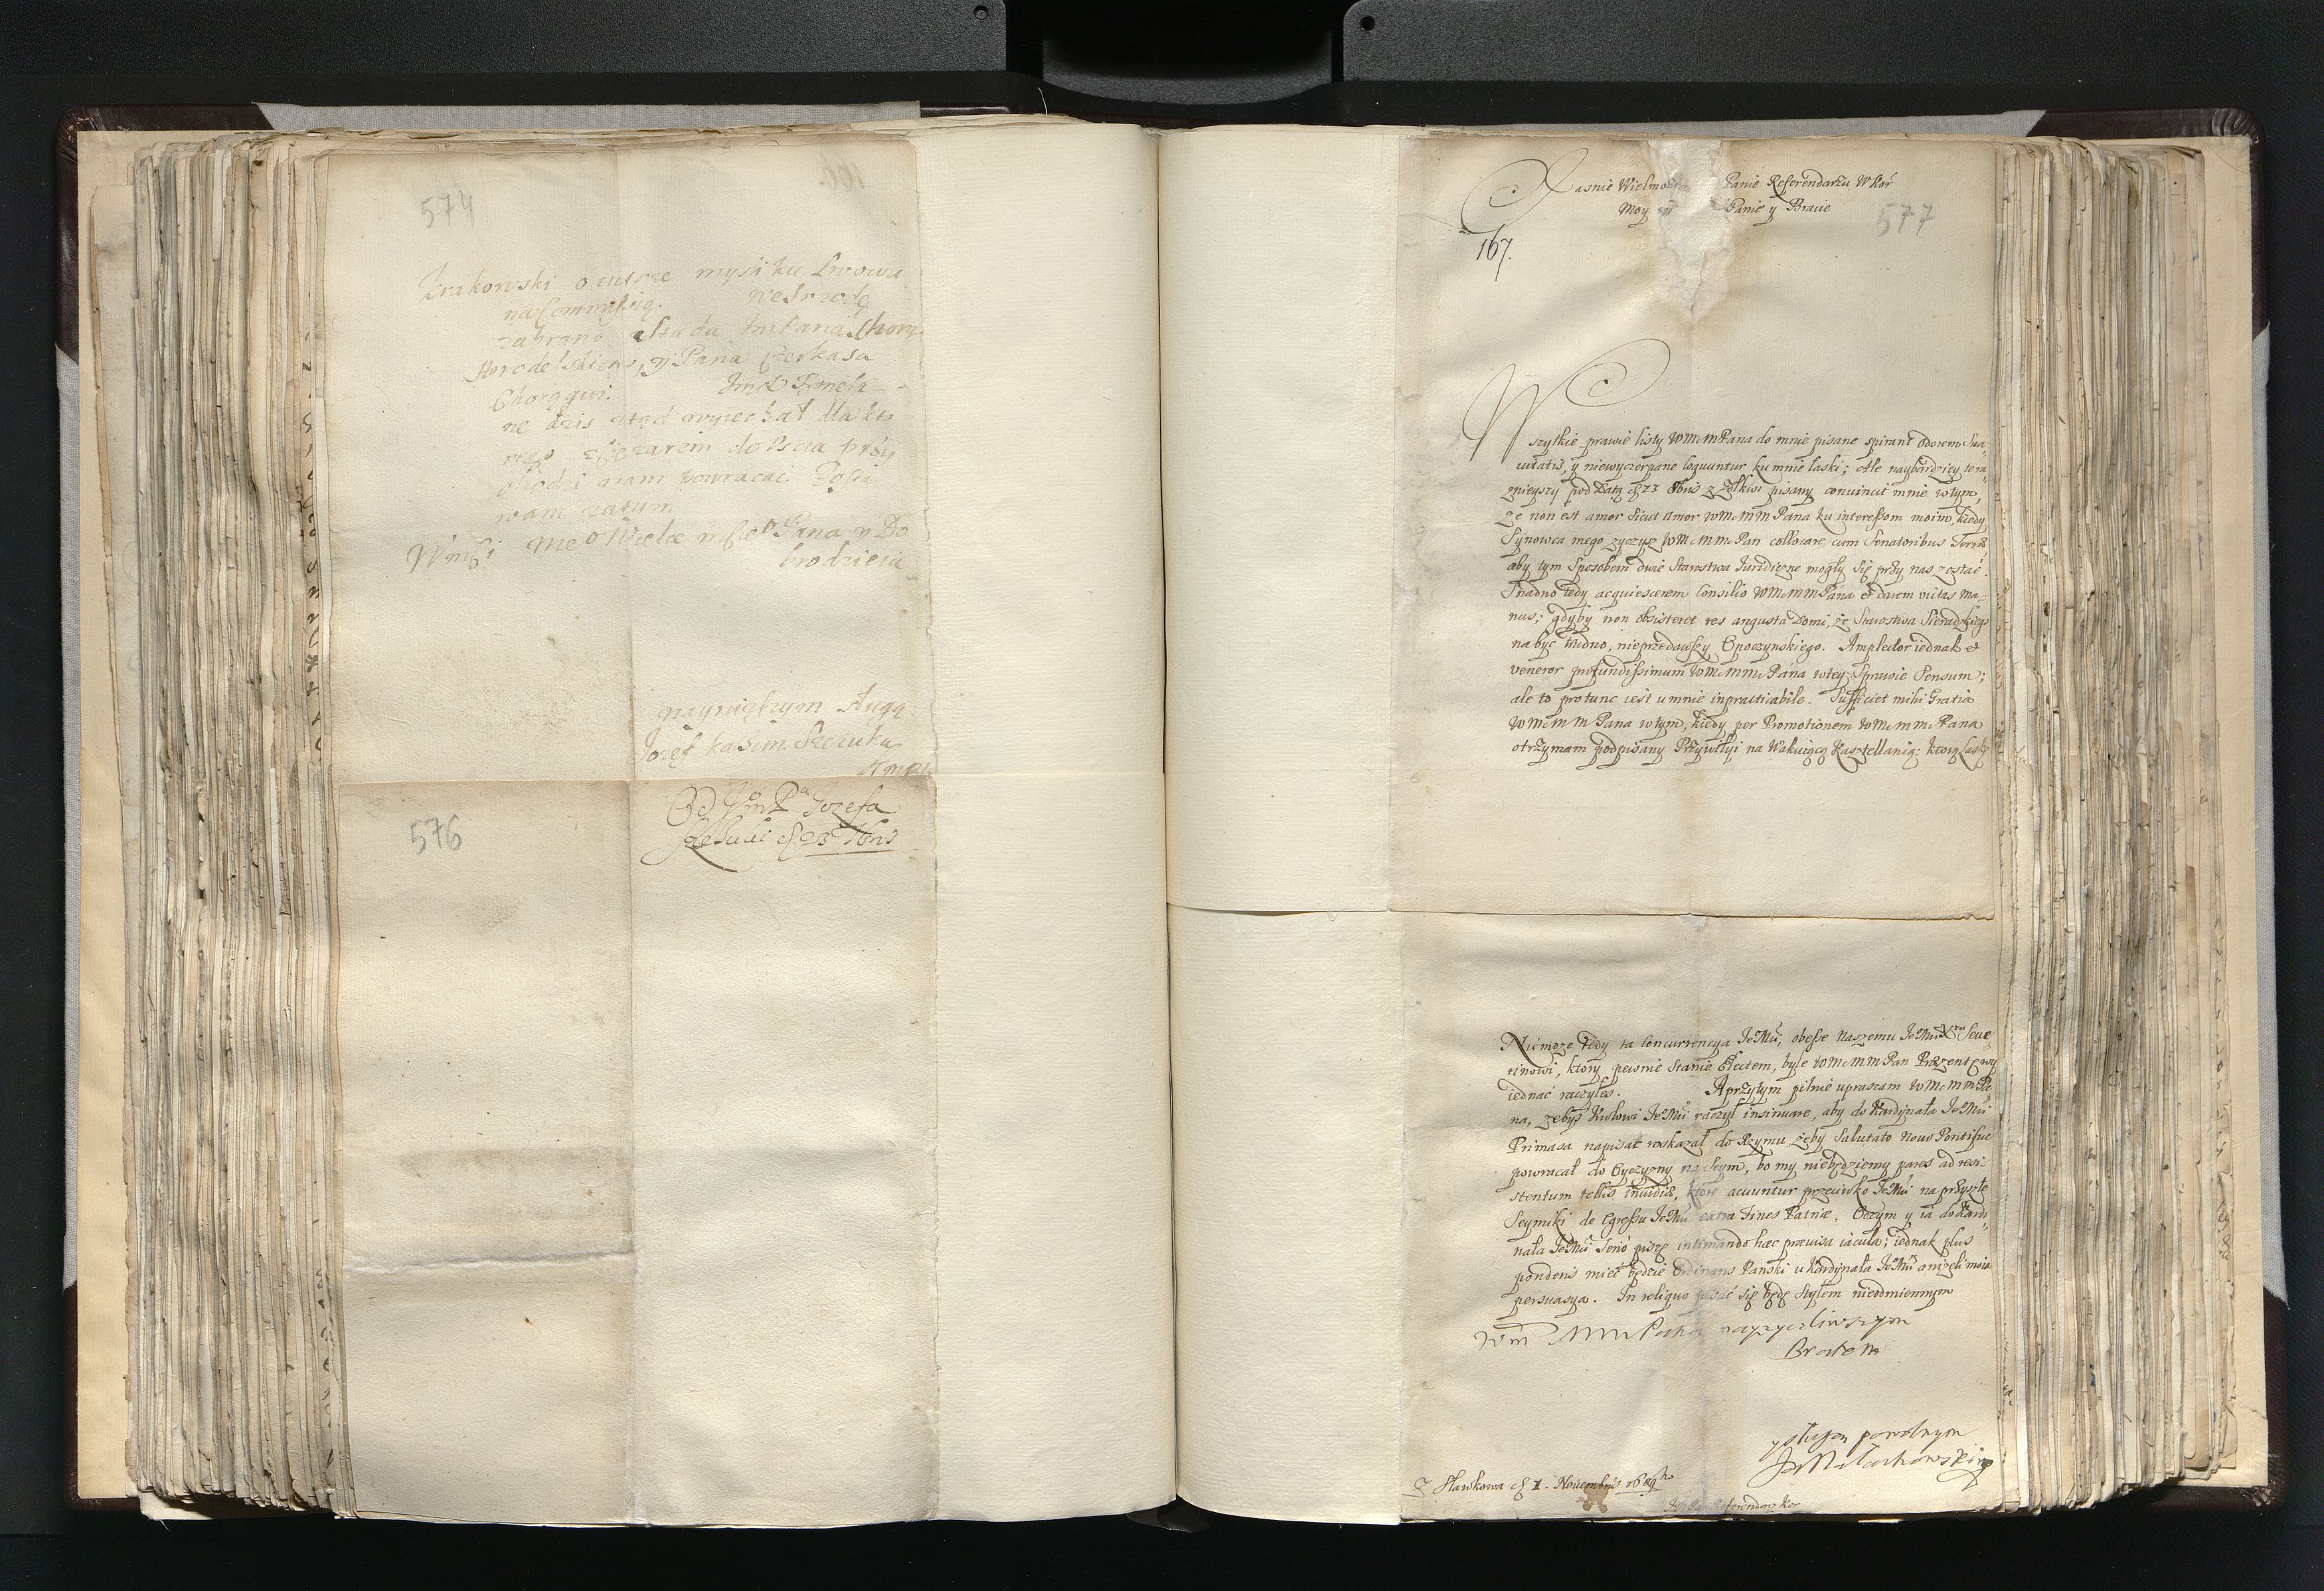 574
Krakowski o iutrze mysli ku Lwowu
na Commissią. we Srzodę
zabrano stada ImPana Chorą.
Horodelskiego, y Pana Czerkasa
Chorągwi.
ne dzis ztąd wyiechał dla kto
rego
mam powracac
wam zatym
Wmsci Me° Wielce msci Pana y Do
brodzieia
naynizszym sługą
Iozef Kazim. Szczuka
576
Od Jm Pa Jozefa
Szczuki d 23 Xbris
Jasnie Wielmo Panie Referendarzu WKor
Moy Panie y Bracie
577
167.
Wszytkie prawie listy WMcMPana do mnie pisane spirant odorem Sua-
uitatis, y niewyczerpane loquuntur ku mnie łaski; Ale naybardziey tera-
znieyszy pod Datą d 23 8bris z Zołkwi pisany conuincit mnie wtym,
ze non est amor sicut amor WMcMMPana ku interessom moim, kiedy
Synowca mego zyczysz WMcMMPan collocare cum Senatoribus Terræ
aby tym Sposobem dwie Starostwa Iuridiczne mogły się przy nas zostać.
Snadno tedy acquiescerem Consilio WMcMMPana et darem victas ma-
nus; gdyby non obsisteret res angusta Domi, że Starostwa Sieradzkiego
nabyc trudno, nieprzedawszy Opoczynskiego. Amplector iednak et
veneror profundissimum WMcMMPana wtey Sprawie Sensum;
ale to protunc iest umnie inpracticabile. Sufficiet mihi Gratia
WMcMMPana wtym, kiedy per Promotionem WMcMMPana
otrzymam podpisany Przywiley na Wakuiącą Kasztellanią; ktorą łaskę
Niemoze tedy ta Concurrencya JeoMci, obesse Naszemu JeoMci Xdzu Seue-
rinowi, ktory pewnie Stanie Electem, byle WMcMMPan Præzentę iey
iednać raczyłes. Aprzytym pilnie upraszam WMcMMPa
na, zebyś Krolowi JeoMci raczył insinuare, aby do Kardynała JeoMci
Primasa napisać roskazał do Rzymu, żeby Salutato Nouo Pontifice
powracał do Oyczyzny na Seym, bo my niebędziemy pares ad resi-
stentum tellis inuidiæ, ktore acuuntur przeciwko JeoMci na przyszłe
Seymiki de Egressu JeoMci extra Fines Patriæ. Oczym y ia do Kardi-
nała JeoMci Serio piszę intimando hæc præuisa iacula; iednak plus
ponderis mieć będzie Ordinans Pański u Kardynała JeoMci anizeli moia
persuasya. In reliquo pisać się będę Stylem nieodmiennym
Wm MMPana nayzyczliwszym
Bratem
y sługą powolnym
JMałachowski
Z Sławkowa d 1. Nouembris 1689
Referendarz Kor